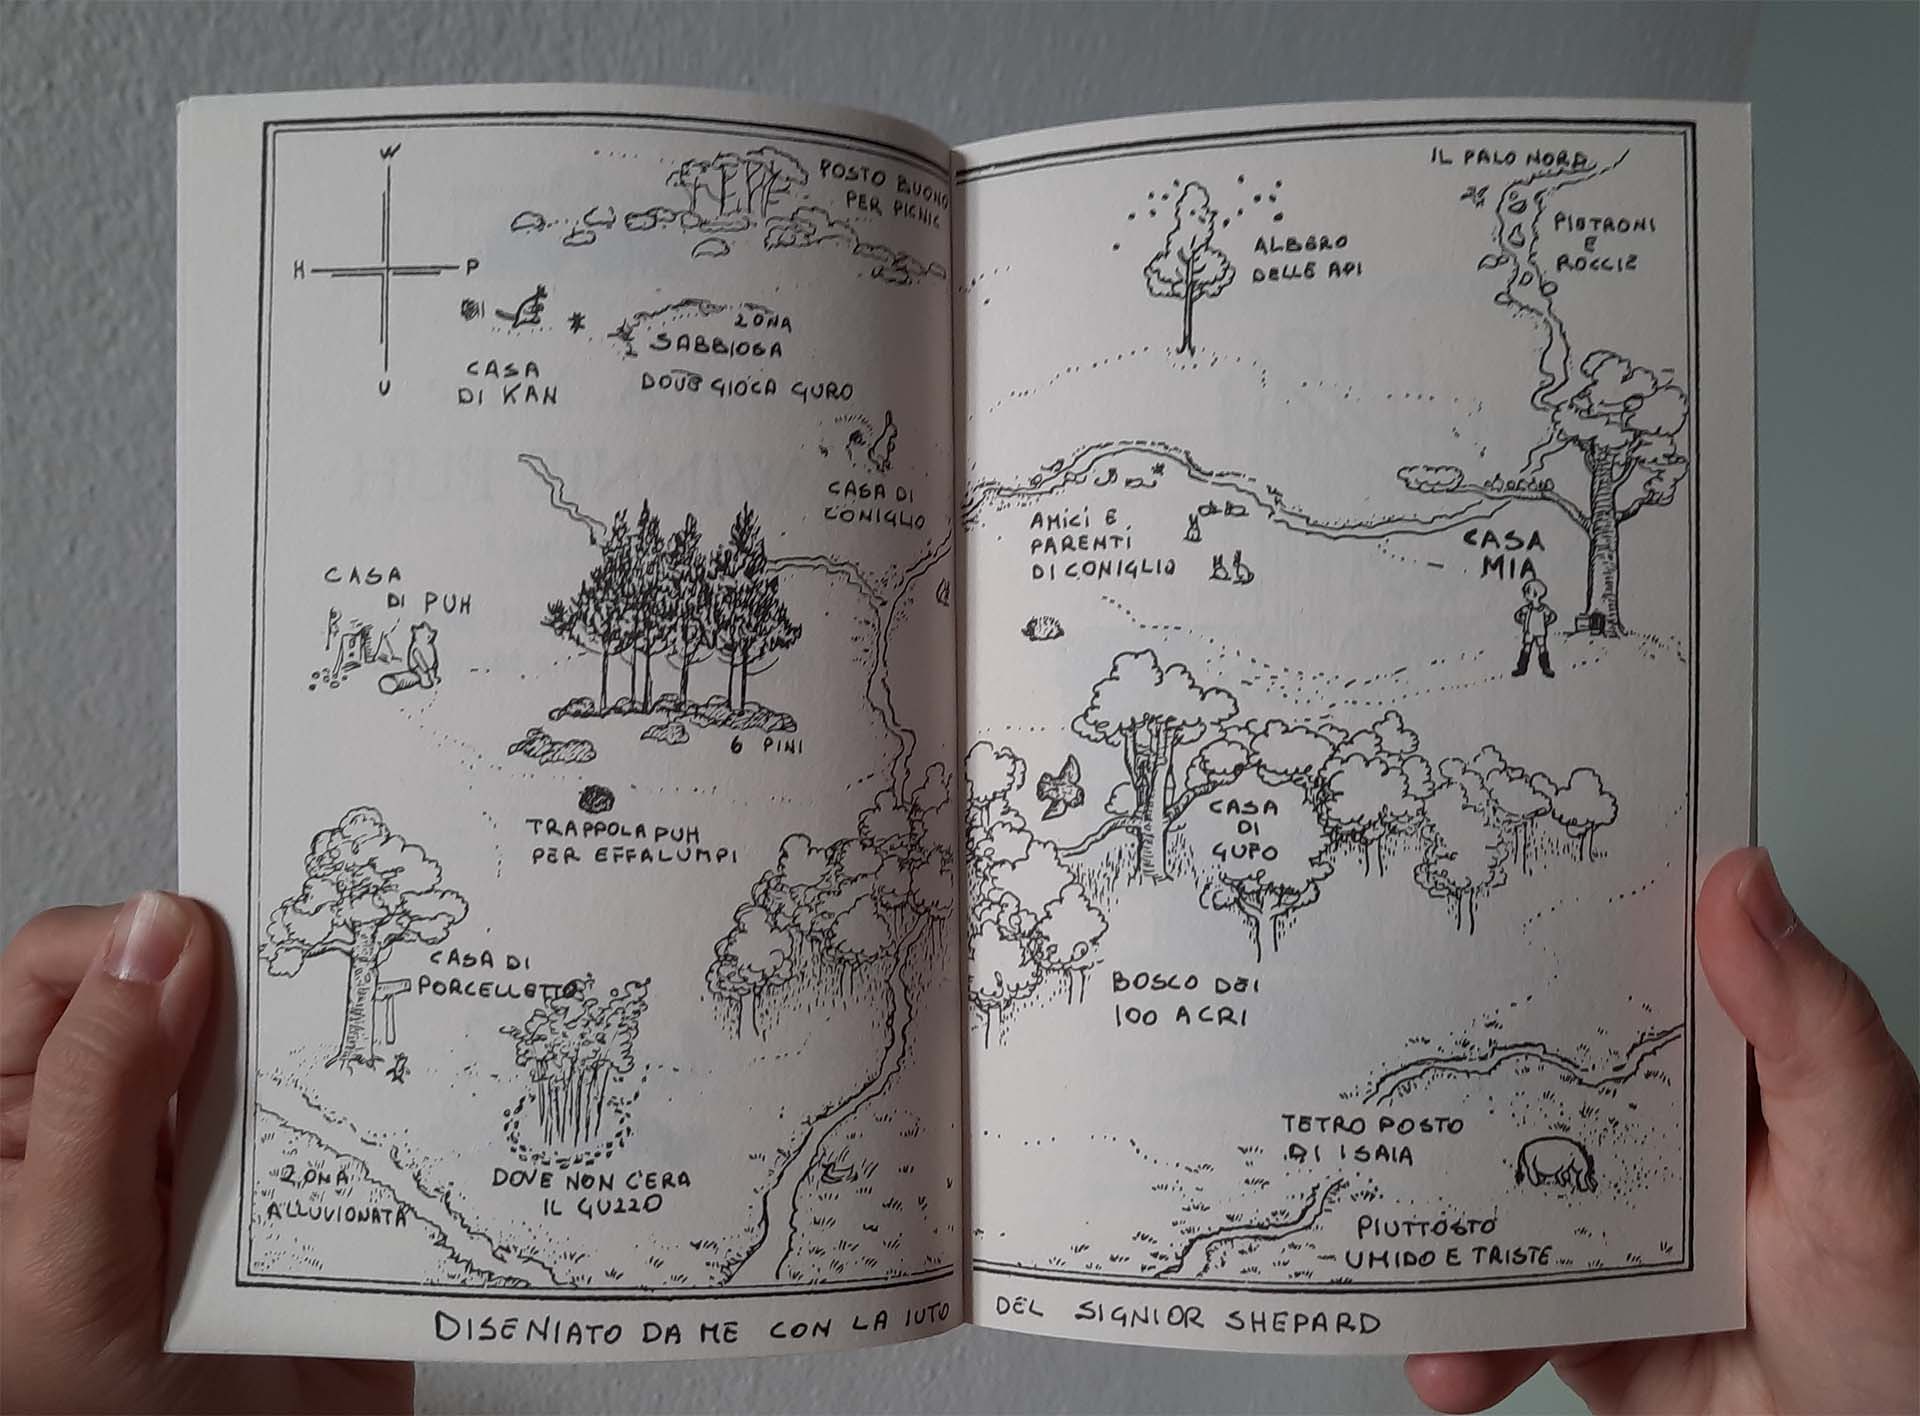 W
H P
U
POSTO BUONO
PER PICNIC
CASA
DI KAN
ZONA
SABBIOSA
DOVE GIOCA GURO
CASA DI
CONIGLIO
CASA
DI PUH
6 PINI
TRAPPOLA PUH
PER EFFALUMPI
CASA DI
PORCELLETTO
DOVE NON C'ERA
IL GUZZO
ZONA
ALLUVIONATA
IL PALO NORD
ALBERO
DELLE API
PIETRONI
E
ROCCIE
AMICI E
PARENTI
DI CONIGLIO
CASA
MIA
CASA
DI
GUFO
BOSCO DEI
100 ACRI
TETRO POSTO
DI ISAIA
PIUTTOSTO
UMIDO E TRISTE
DISENIATO DA ME CON LA IUTO DEL SIGNIOR SHEPARD